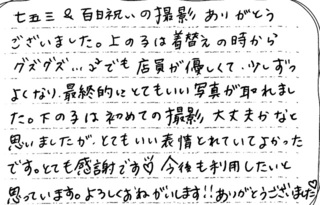 七五三 & 百日祝いの撮影 ありがとう
ございました。上の子は着替えの時から
グズグズ…でも 店員が優しくて、少しずつ
よくなり、最終的にとてもいい写真が取れまし
た。下の子は初めての撮影、大丈夫かなと
思いましたが、とてもいい表情とれていてよかった
です。とても感謝です♡ 今後も利用したいと
思っています。よろしくおねがいします!!ありがとうございました♡